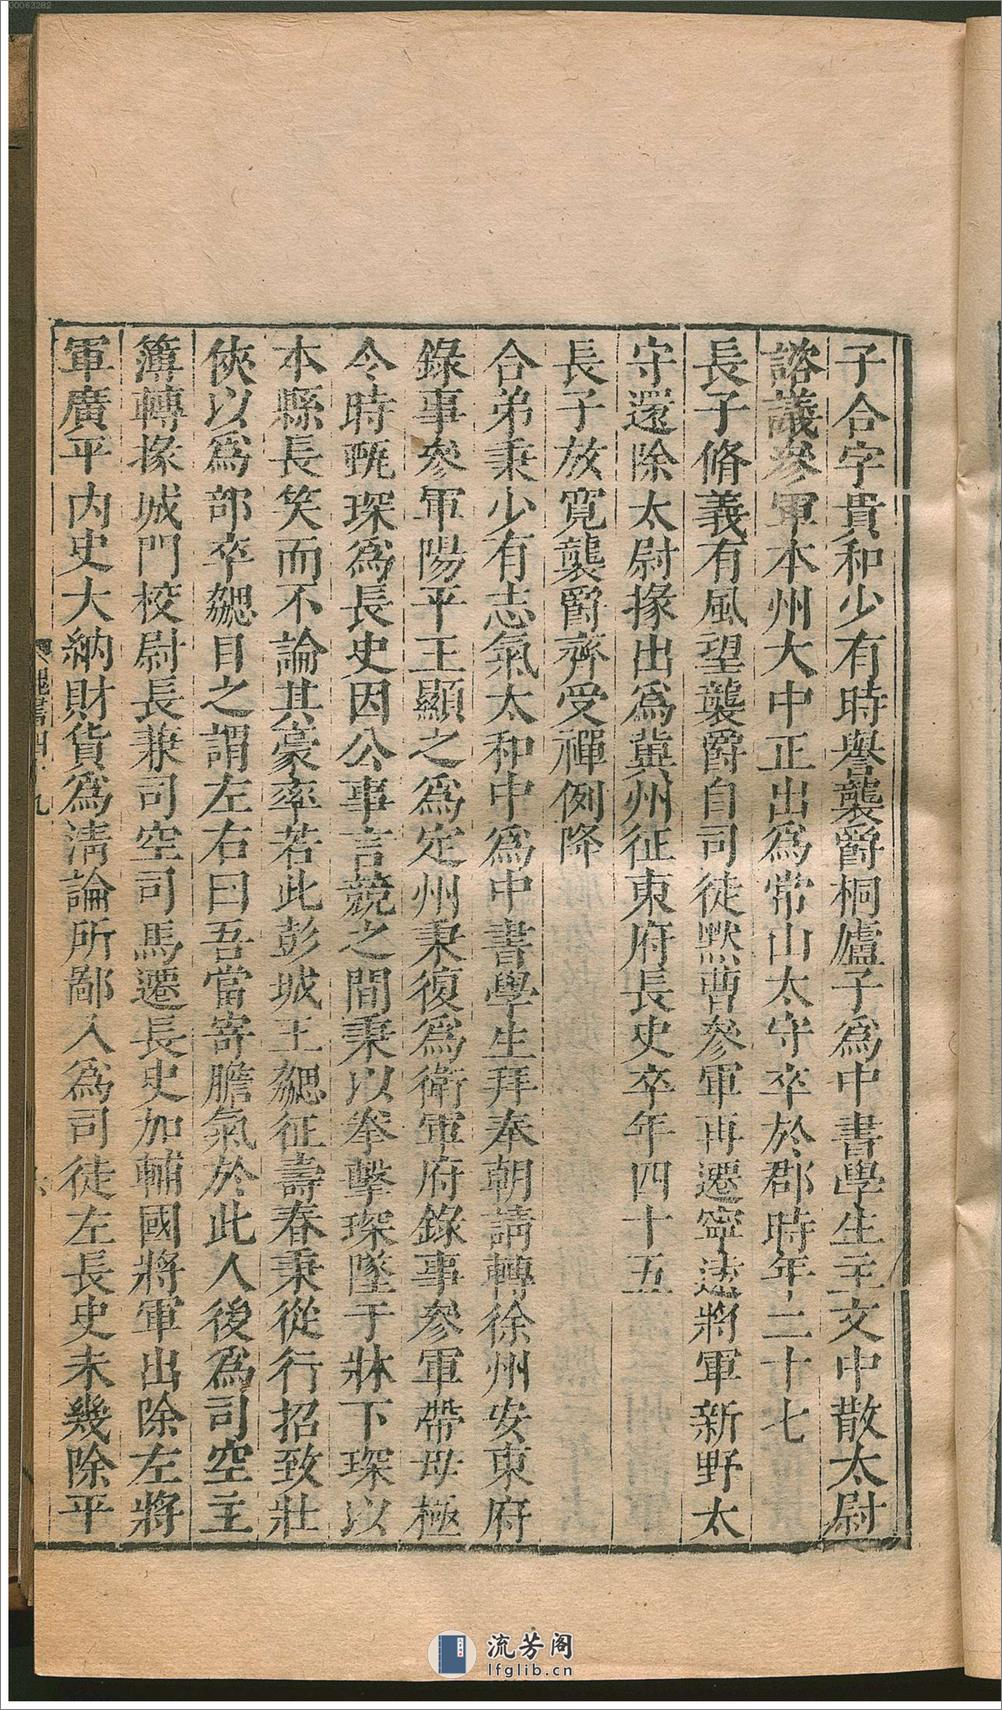 子合字貴和少有時譽襲爵桐廬子為中書學生主文中散太尉
諮議參軍本州大中正出為常山太守卒於郡時年二十七
長子脩義有風望襲爵自司徒默曹參軍再遷寧遠將軍新野太
守還除太尉掾出為冀州征東府長史卒年四十五
長子放寬襲爵齊受禪例降
合弟秉少有志氣太和中為中書學生拜奉朝請轉徐州安東府
錄事參軍陽平王顯之為定州秉復為衛軍府錄事參軍帶毋極
令時甄琛為長史因公事言競之間秉以拳擊琛墜于牀下琛以
本縣長笑而不論其豪率若此彭城王勰征壽春秉從行招致壯
俠以為部卒勰目之謂左右曰吾當寄膽氣於此人後為司空主
簿轉掾城門校尉長兼司空司馬遷長史加輔國將軍出除左將
軍廣平內史大納財貨為清論所鄙入為司徒左長史未幾除平
魏書四十九
六
30063282
流芳阁
lfglib.cn